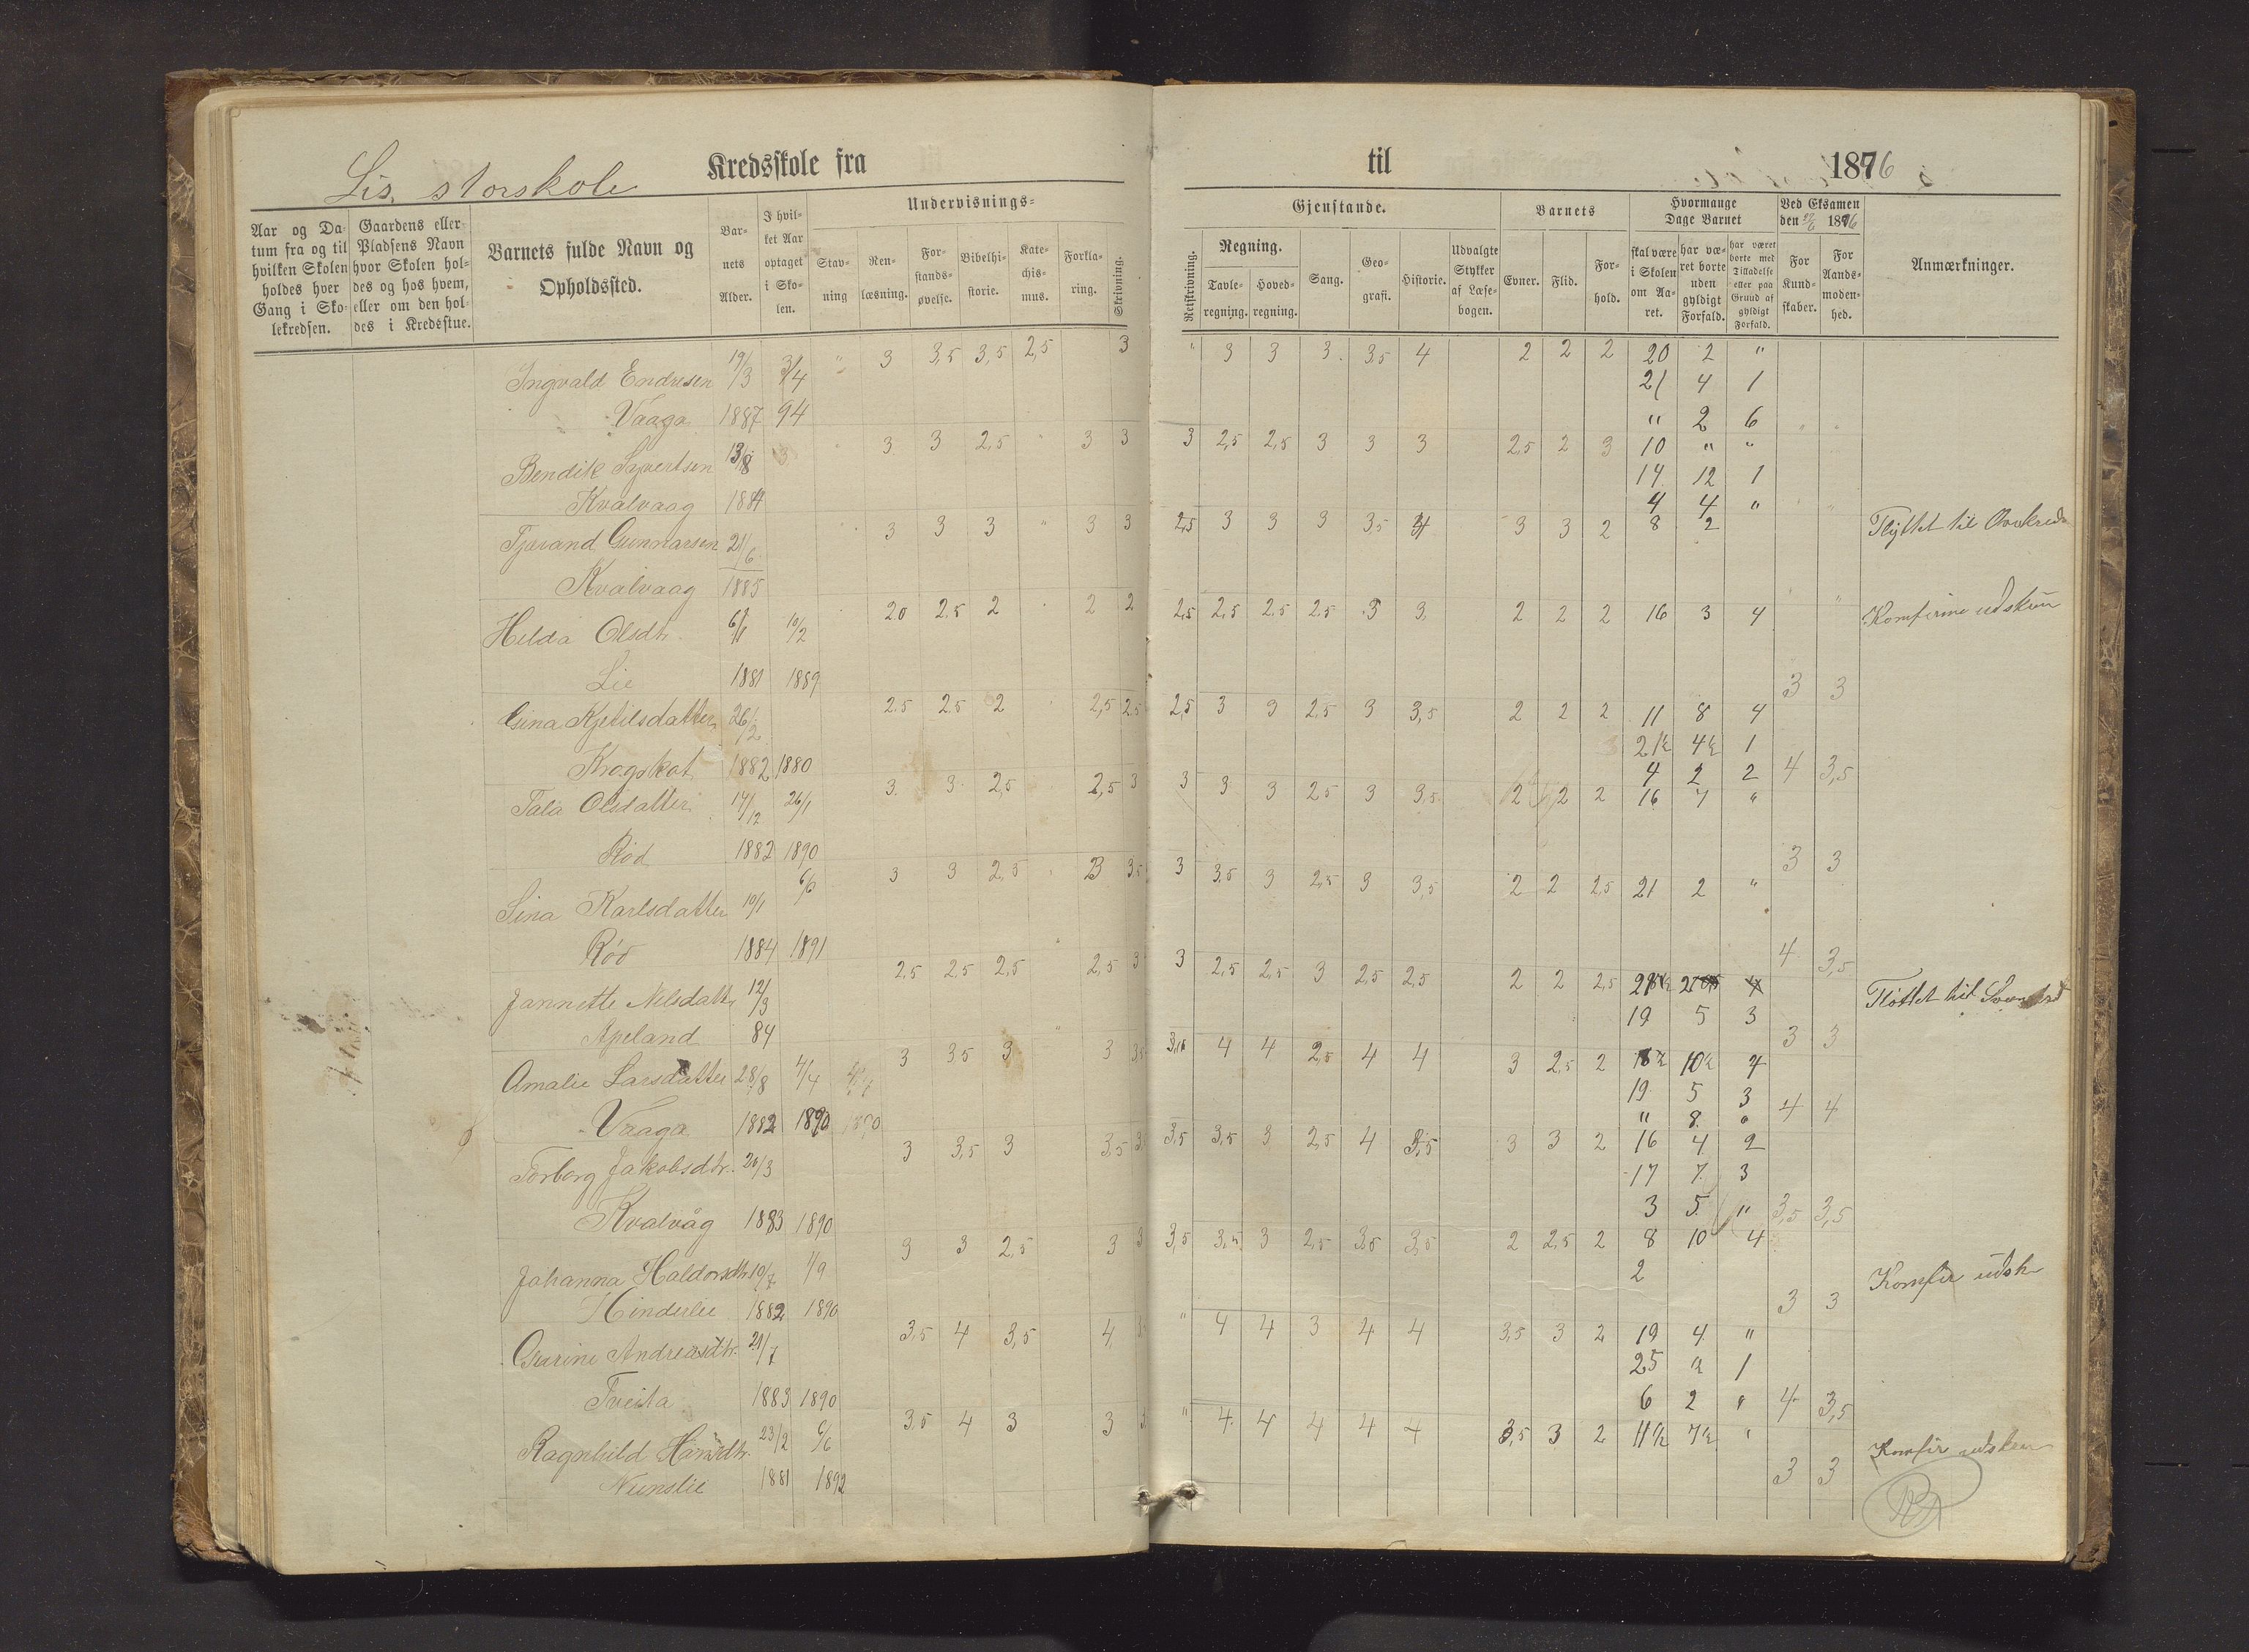 Lis, storskole Kredsskole fra til 1896
Aar og Datum fra og til hvilken Skolen holdes hver Gang i Skolekredsen.
Gaardens eller Pladsens Navn hvor Skolen holdes og hos hvem, eller om den holdes i Kredsstue.
Barnets fulde Navn og Opholdssted.
Barnets Alder.
I hvilket Aar optaget i Skolen.
Undervisnings-
Stavning
Renlæsning.
Forstandsøvelse.
Bibelhistorie.
Katechismus.
Forklaring.
Skrivning.
Gjenstande.
Retskrivning.
Regning.
Tavleregning.
Hovedregning.
Sang.
Geografi.
Historie.
Udvalgte Stykker af Læsebogen.
Barnets
Evner.
Flid.
Forhold.
Hvormange Dage Barnet
skal være i Skolen om Aaret.
har været borte uden gyldigt Forfald.
har været borte med Tilladelse eller paa Grund af gyldigt Forfald.
Ved Eksamen den 1896
For Kundskaber.
For Aandsmodenhed.
Anmærkninger.
Ingvald Endresen 19/3 3/4 " 3 3,5 3,5 2,5 3 " 3 3 3 3,5 4 2 2 2 20 2 "
21 4 1
Vaaga 1887 94 " 2 6
Bendik Sjvertsen 13/8 3 3 2,5 " 3 3 3 2,5 2,5 3 3 3 2,5 2 3 10 " "
14 12 1
Kvalvaag 1884 4 4 "
Tjerand Gunnarsen 21/6 3 3 3 " 3 3 2,5 3 3 3 3,5 4 3 3 2 8 2 Flyttet til
Kvalvaag 1885
Hilda Olsdtr. 6/1 10/2 20 2,5 2 2 2 2,5 2,5 2,5 2,5 3 3 2 2 2 16 3 4
Lie 1881 1889 3 3
Gina Kjetilsdatter 26/2 25 25 2 2,5 25 2,5 3 3 2,5 3 3,5 2 2 2 11 8 4
21½ 4½ 1
Krogskot 1882 1880 4 2 2 4 3,5
Tala Olsdatter 14/12 26/1 3 3 2,5 2,5 3 3 3 3 25 3 3,5 2 2 2 16 4 "
Rød 1882 1890 3 3
Sina Karlsdatter 10/1 6/6 3 3 2,5 3 3,5 3 3,5 3 2,5 3 3,5 2 2 2,5 21 2 "
Rød 1884 1891 4 3,5
Jannette Nilsdatt. 12/3 2,5 2,5 2,5 2,5 3 3 2,5 2,5 3 2,5 2,5 2 2 2,5 Flottet til
19 5 3
Apeland 84 3 3
Amalie Larsdatter 28/8 4/4 3 35 3 3 3,5 4 4 2,5 4 4 3 2,5 2 10½ 4
19 5 3
Vaaga 1882 1890 1890 " 8 " 4 4
Torborg Jakobsdtr. 20/3 3 3,5 3 3,5 3,5 3,5 3 2,5 4 3,5 3 3 2 16 4 2
17 7 3
Kvalvåg 1883 1890 3 5 " 3,5 3,5
Johanna Haldorsdtr. 10/7 1/9 3 3 2,5 3 3 3,5 3,5 3 2,5 3,5 3,5 2 2,5 2 8 10 4
2
Hinderlie 1882 1890 3 3
Gurine Andreasdtr. 21/7 3,5 4 3,5 4 " 4 4 3 4 4 3,5 3 2 19 4 "
25 1
Tveita 1883 1890 6 2 " 4 3,5
Ragnhild Hansdtr. 23/2 6/6 35 4 3 3 3 " 4 4 4 4 4 3,5 3 2 11½ 7½ "
1881 1892 3 3